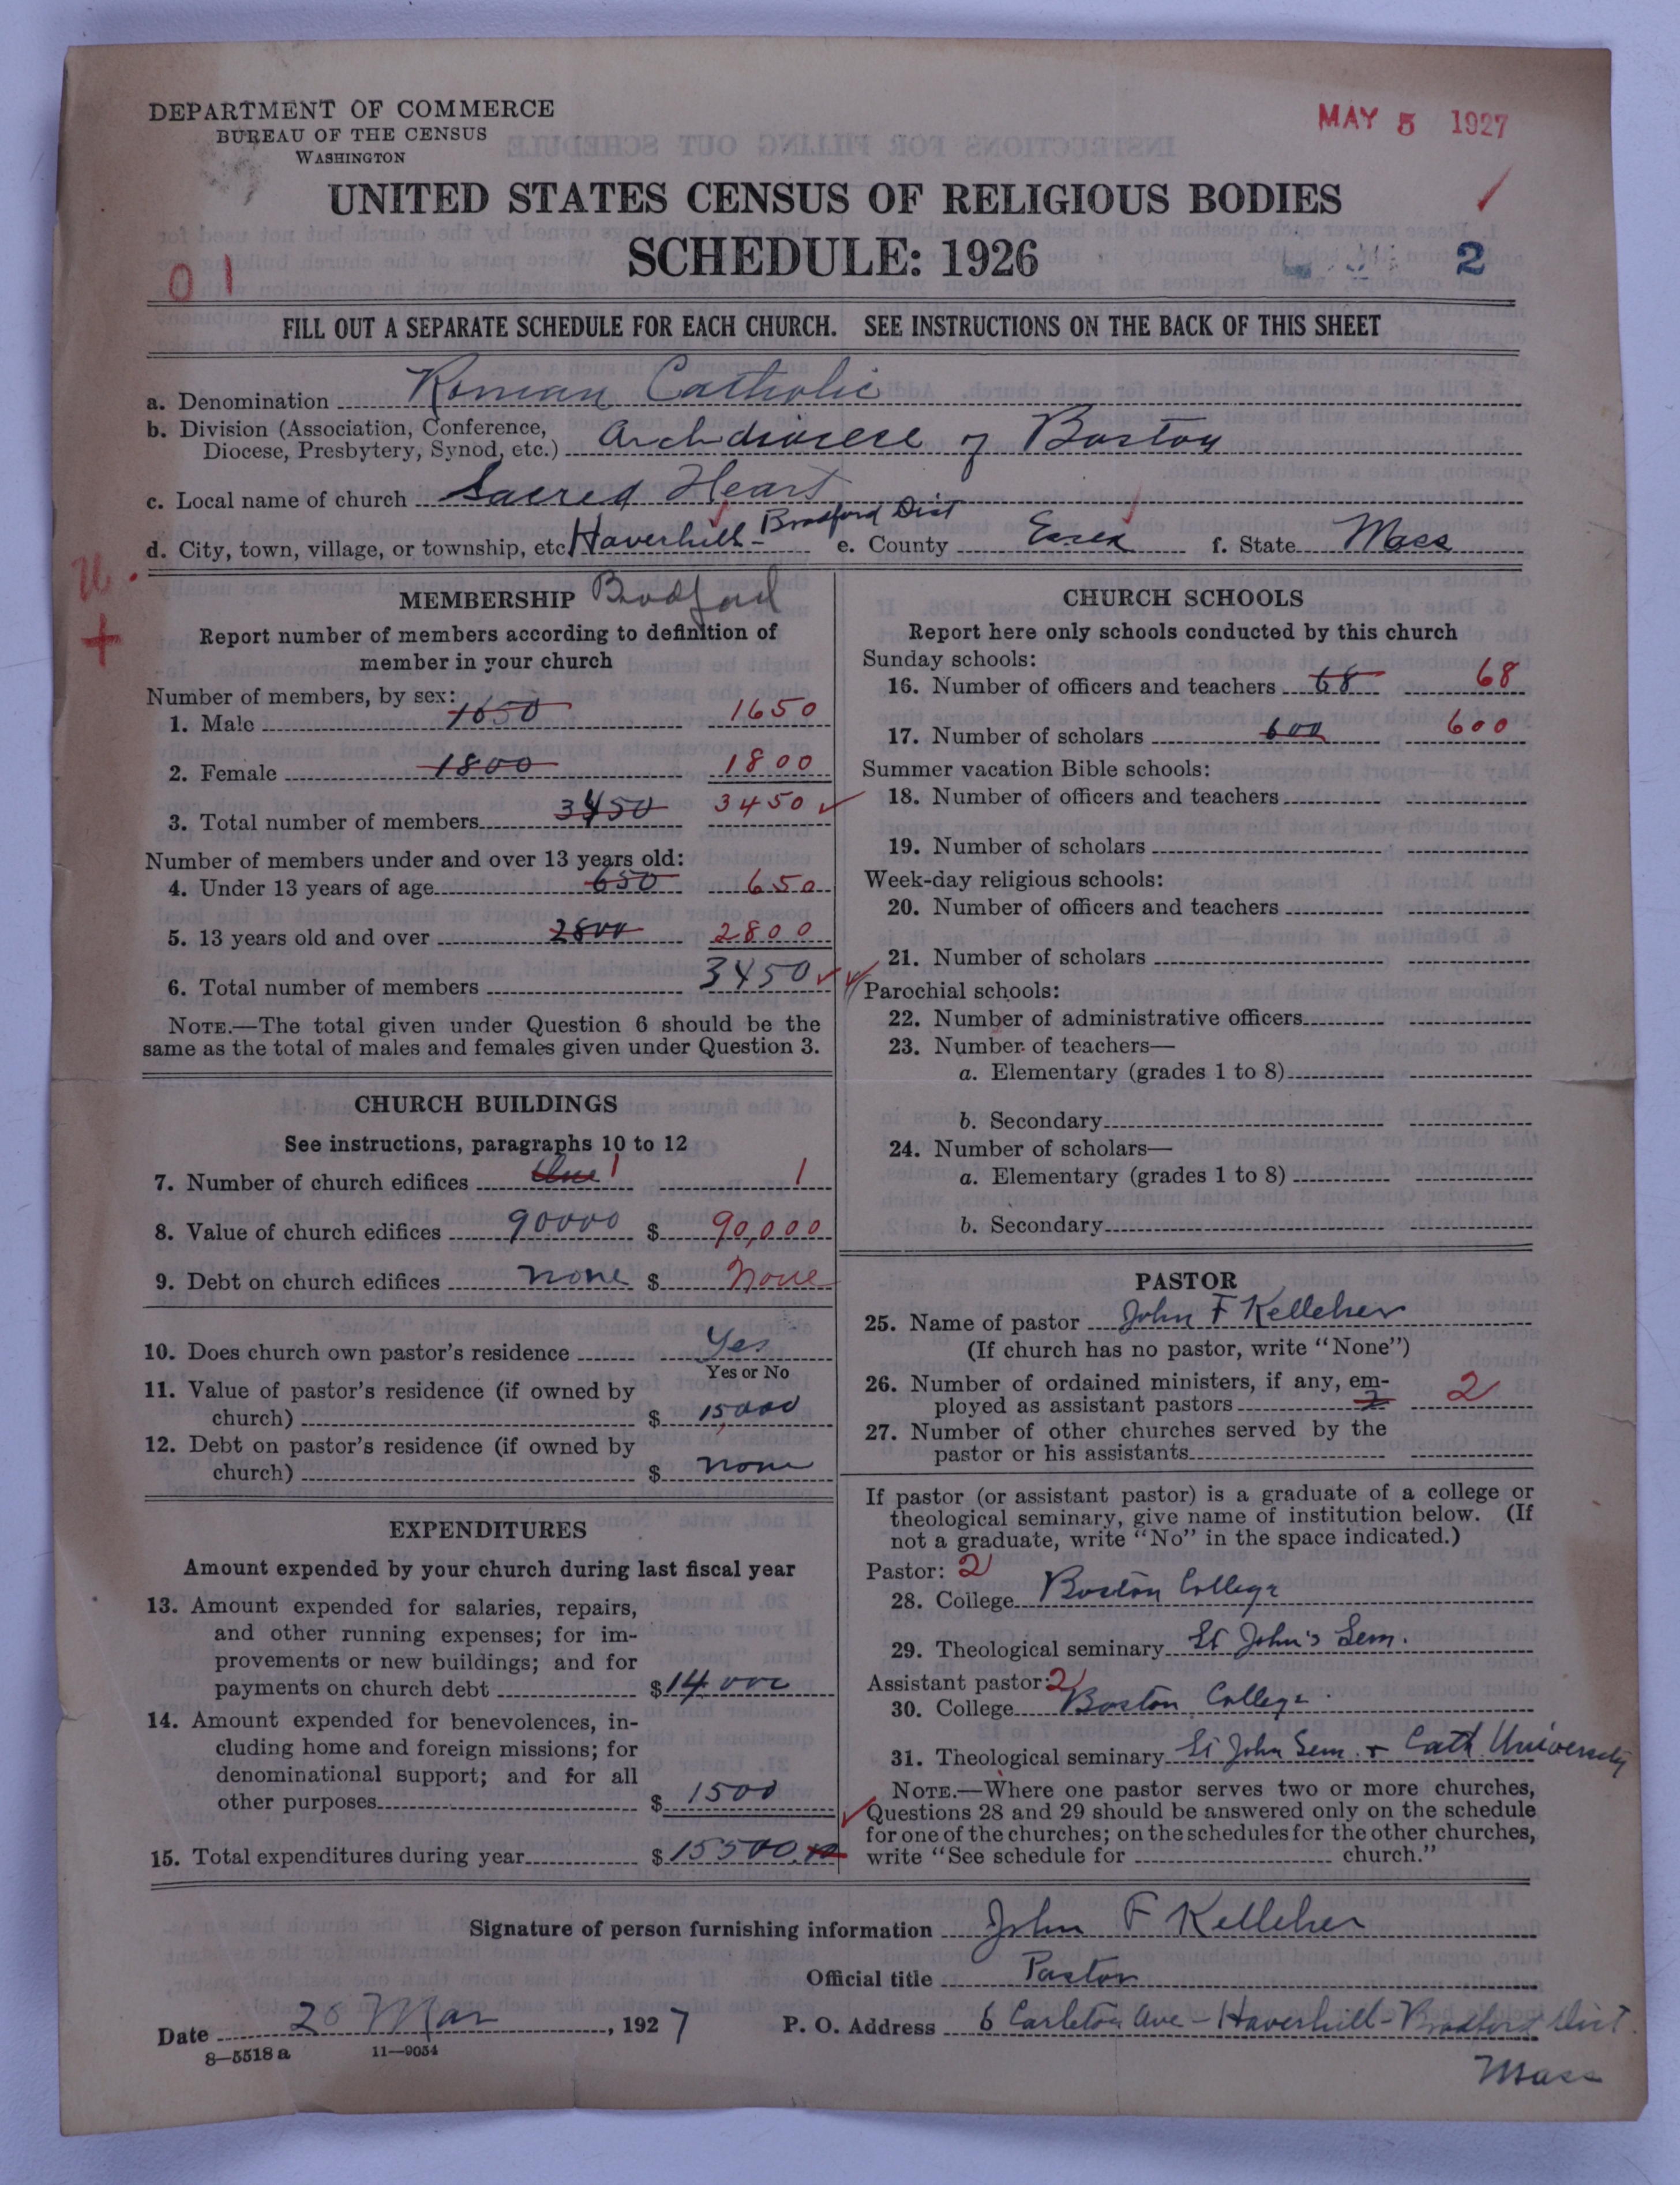 DEPARTMENT OF COMMERCE
BUREAU OF THE CENSUS
WASHINGTON
MAY 5 1927
UNITED STATES CENSUS OF RELIGIOUS BODIES
SCHEDULE: 1926
2
01
FILL OUT A SEPARATE SCHEDULE FOR EACH CHURCH. SEE INSTRUCTIONS ON THE BACK OF THIS SHEET
a. Denomination Roman Catholic
b. Division (Association, Conference, Diocese, Presbytery, Synod, etc.) Archdiocese of Boston
c. Local name of church Sacred Heart
d. City, town, village, or township, etc. Haverhill - Bradford Dist e. County Essex f. State Mass
MEMBERSHIP Bradford
Report number of members according to definition of
member in your church
Number of members, by sex:
1. Male 1650 1650
2. Female 1800 1800
3. Total number of members 3450 3450
Number of members under and over 13 years old:
4. Under 13 years of age 650 650
5. 13 years old and over 2800 2800
6. Total number of members 3450
NOTE.—The total given under Question 6 should be the
same as the total of males and females given under Question 3.
CHURCH BUILDINGS
See instructions, paragraphs 10 to 12
7. Number of church edifices One 1 1
8. Value of church edifices 90000 $ 90,000
9. Debt on church edifices none $ None
10. Does church own pastor's residence Yes
Yes or No
11. Value of pastor's residence (if owned by
church) $ 15,000
12. Debt on pastor's residence (if owned by
church) $ none
EXPENDITURES
Amount expended by your church during last fiscal year
13. Amount expended for salaries, repairs,
and other running expenses; for im-
provements or new buildings; and for
payments on church debt $ 14,000
14. Amount expended for benevolences, in-
cluding home and foreign missions; for
denominational support; and for all
other purposes $ 1500
15. Total expenditures during year $ 15500.
CHURCH SCHOOLS
Report here only schools conducted by this church
Sunday schools:
16. Number of officers and teachers 68 68
17. Number of scholars 600 600
Summer vacation Bible schools:
18. Number of officers and teachers
19. Number of scholars
Week-day religious schools:
20. Number of officers and teachers
21. Number of scholars
Parochial schools:
22. Number of administrative officers
23. Number of teachers—
a. Elementary (grades 1 to 8)
b. Secondary
24. Number of scholars—
a. Elementary (grades 1 to 8)
b. Secondary
PASTOR
25. Name of pastor John F Kelleher
(If church has no pastor, write "None")
26. Number of ordained ministers, if any, em-
ployed as assistant pastors 2 2
27. Number of other churches served by the
pastor or his assistants
If pastor (or assistant pastor) is a graduate of a college or
theological seminary, give name of institution below. (If
not a graduate, write "No" in the space indicated.)
Pastor: 2
28. College Boston College
29. Theological seminary St John's Sem.
Assistant pastor: 2
30. College Boston College
31. Theological seminary St John Sem. + Cath University
NOTE.—Where one pastor serves two or more churches,
Questions 28 and 29 should be answered only on the schedule
for one of the churches; on the schedules for the other churches,
write "See schedule for church."
Signature of person furnishing information John F Kelleher
Official title Pastor
Date 28 Mar, 1927 P. O. Address 6 Carleton Ave - Haverhill - Bradford Dist.
Mass
8—5518 a 11—9054